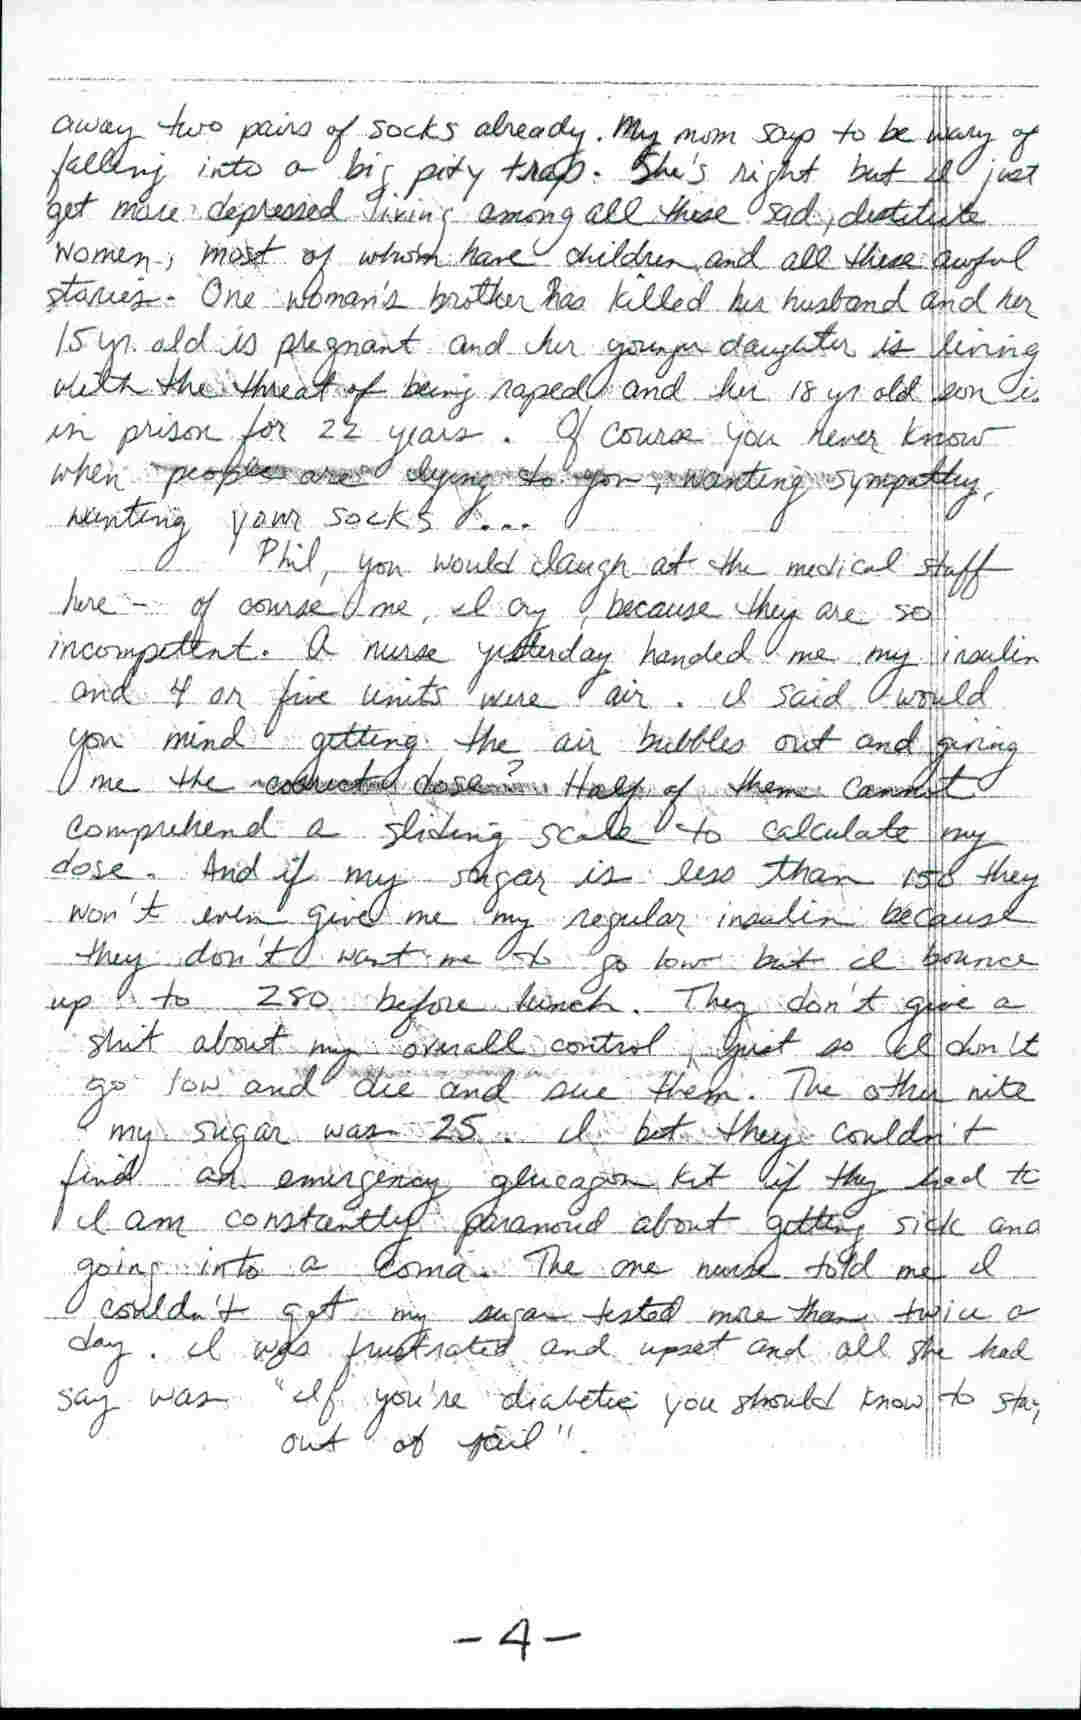 away two pairs of socks already. My mom says to be wary of
falling into a big pity trap. She's right but I just
get more depressed living among all these sad, destitute
women, most of whom have children and all these awful
stories. One woman's brother has killed her husband and her
15 yr. old is pregnant and her younger daughter is living
with the threat of being raped and her 18 yr old son is
in prison for 22 years. Of course you never know
when people are lying to you, wanting sympathy,
wanting your socks ...
Phil, you would laugh at the medical staff
here - of course me, I cry, because they are so
incompetent. A nurse yesterday handed me my insulin
and 4 or five units were air. I said would
you mind getting the air bubbles out and giving
me the correct dose? Half of them cannot
comprehend a sliding scale to calculate my
dose. And if my sugar is less than 150 they
won't even give me my regular insulin because
they don't want me to go low but I bounce
up to 280 before lunch. They don't give a
shit about my overall control, just so I don't
go low and die and sue them. The other nite
my sugar was 25. I bet they couldn't
find an emergency glucagon kit if they had to
I am constantly paranoid about getting sick and
going into a coma. The one nurse told me I
couldn't get my sugar tested more than twice a
day. I was frustrated and upset and all she had
say was "If you're diabetic you should know to stay
out of jail".
-4-